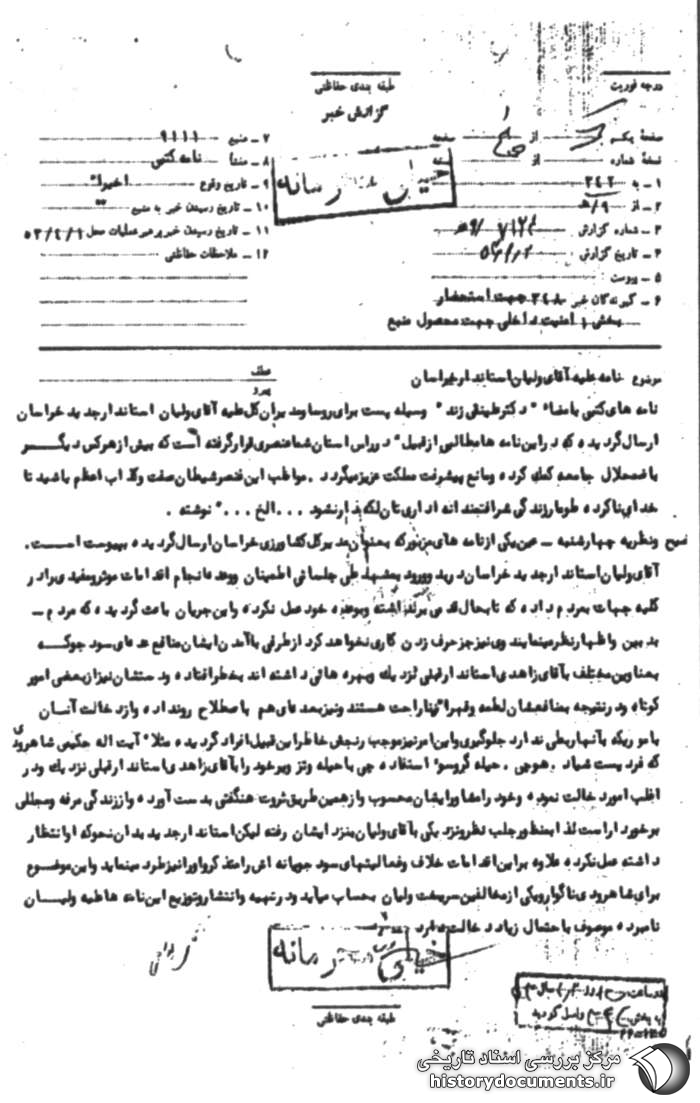 درجه فوریت
طبقه بندی حفاظتی
گزارش خبر
صفحه یکم از صفحه
نسخه شماره از نسخه
۱ – به ۳۴۲
۲ – از ۹/ﻫ
۳ – شماره گزارش
۴ – تاریخ گزارش
۵ – پیوست
۶ – گیرندگان خبر ۳۴۸ جهت استحضار
بخش ۱ امنیت داخلی جهت محصول منبع
۷ – منبع ۹۱۱۱
۸ – منشأ نامه کتبی
۹ – تاریخ وقوع اخیراً
۱۰ – تاریخ رسیدن خبر به منبع
۱۱ – تاریخ رسیدن خبر به رهبر عملیات محل ۵۳/۴/۱
۱۲ – ملاحظات حفاظتی
خیلی محرمانه
موضوع نامه علیه آقای ولیان استاندار خراسان
عطف
پیرو
نامه های کتبی بامضاء " دکتر علینقی زند " وسیله پست برای روسا و مدیران کل علیه آقای ولیان استاندار جدید خراسان
ارسال گردیده که در این نامه ها مطالبی از قبیل " در راس استان شما عنصری قرار گرفته است که بیش از هر کس دیگر
باضمحلال جامعه کمک کرده و مانع پیشرفت مملکت عزیز میگردد . مواظب این عنصر شیطان صفت و کذاب اعظم باشید تا
خدای ناکرده طومار زندگی شرافتمندانه اداریتان لکه دار نشود ... الخ ... " نوشته .
نظریه چهارشنبه – عین یکی از نامه های مزبور که بعنوان مدیر کل کشاورزی خراسان ارسال گردیده بپیوست است .
آقای ولیان استاندار جدید خراسان در بدو ورود بمشهد طی جلساتی اطمینان و وعده انجام اقدامات موثر و مفیدی را در
کلیه جهات بمردم داده که تا بحال قدمی برنداشته و بوعده خود عمل نکرده و این جریان باعث گردیده که مردم –
بدبین و اظهار نظر مینمایند وی نیز جز حرف زدن کاری نخواهد کرد از طرفی با آمدن ایشان منافع عده ای سودجو که
بعناوین مختلف بآقای زاهدی استاندار قبلی نزدیک و بهره هائی داشته اند بخطر افتاده و دستشان نیز از بعضی امور
کوتاه و در نتیجه بمنافعشان لطمه و قهراً ناراحت هستند و نیز بعده ای هم باصطلاح رو نداده و از دخالت آنان
باموریکه بآنها ربطی ندارد جلوگیری و این امر نیز موجب رنجش خاطر این قبیل افراد گردیده مثلاً آیت اله حکیمی شاهرودی
که فردیست شیاد . هوچی . حیله گر و سوء استفاده چی با حیله و تزویر خود را بآقای زاهدی استاندار قبلی نزدیک و در
اغلب امور دخالت نموده و خود را مشاور ایشان محسوب و از همین طریق ثروت هنگفتی بدست آورده و از زندگی مرفه و مجللی
برخوردار است لذا بمنظور جلب نظر و نزدیکی بآقای ولیان بنزد ایشان رفته لیکن استاندار جدید بدان نحو که او انتظار
داشته عمل نکرده علاوه بر این اقدامات خلاف و فعالیتهای سودجویانه اش را متذکر و او را نیز طرد مینماید و این موضوع
برای شاهرودی ناگوار و یکی از مخالفین سرسخت ولیان بحساب میآید و در تهیه و انتشار و توزیع این نامه ها علیه ولیان
نامبرده موصوف باحتمال زیاد دخالت دارد
خیلی محرمانه
طبقه بندی حفاظتی
مرکز بررسی اسناد تاریخی
historydocuments.ir